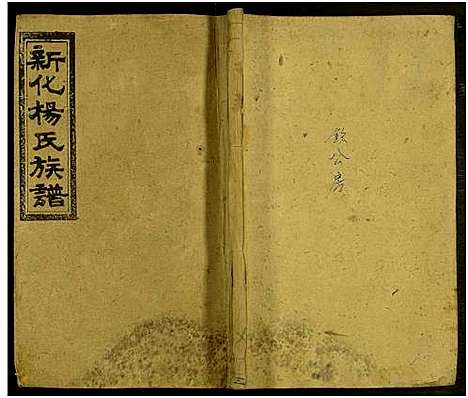 新化楊氏族譜
欽公房